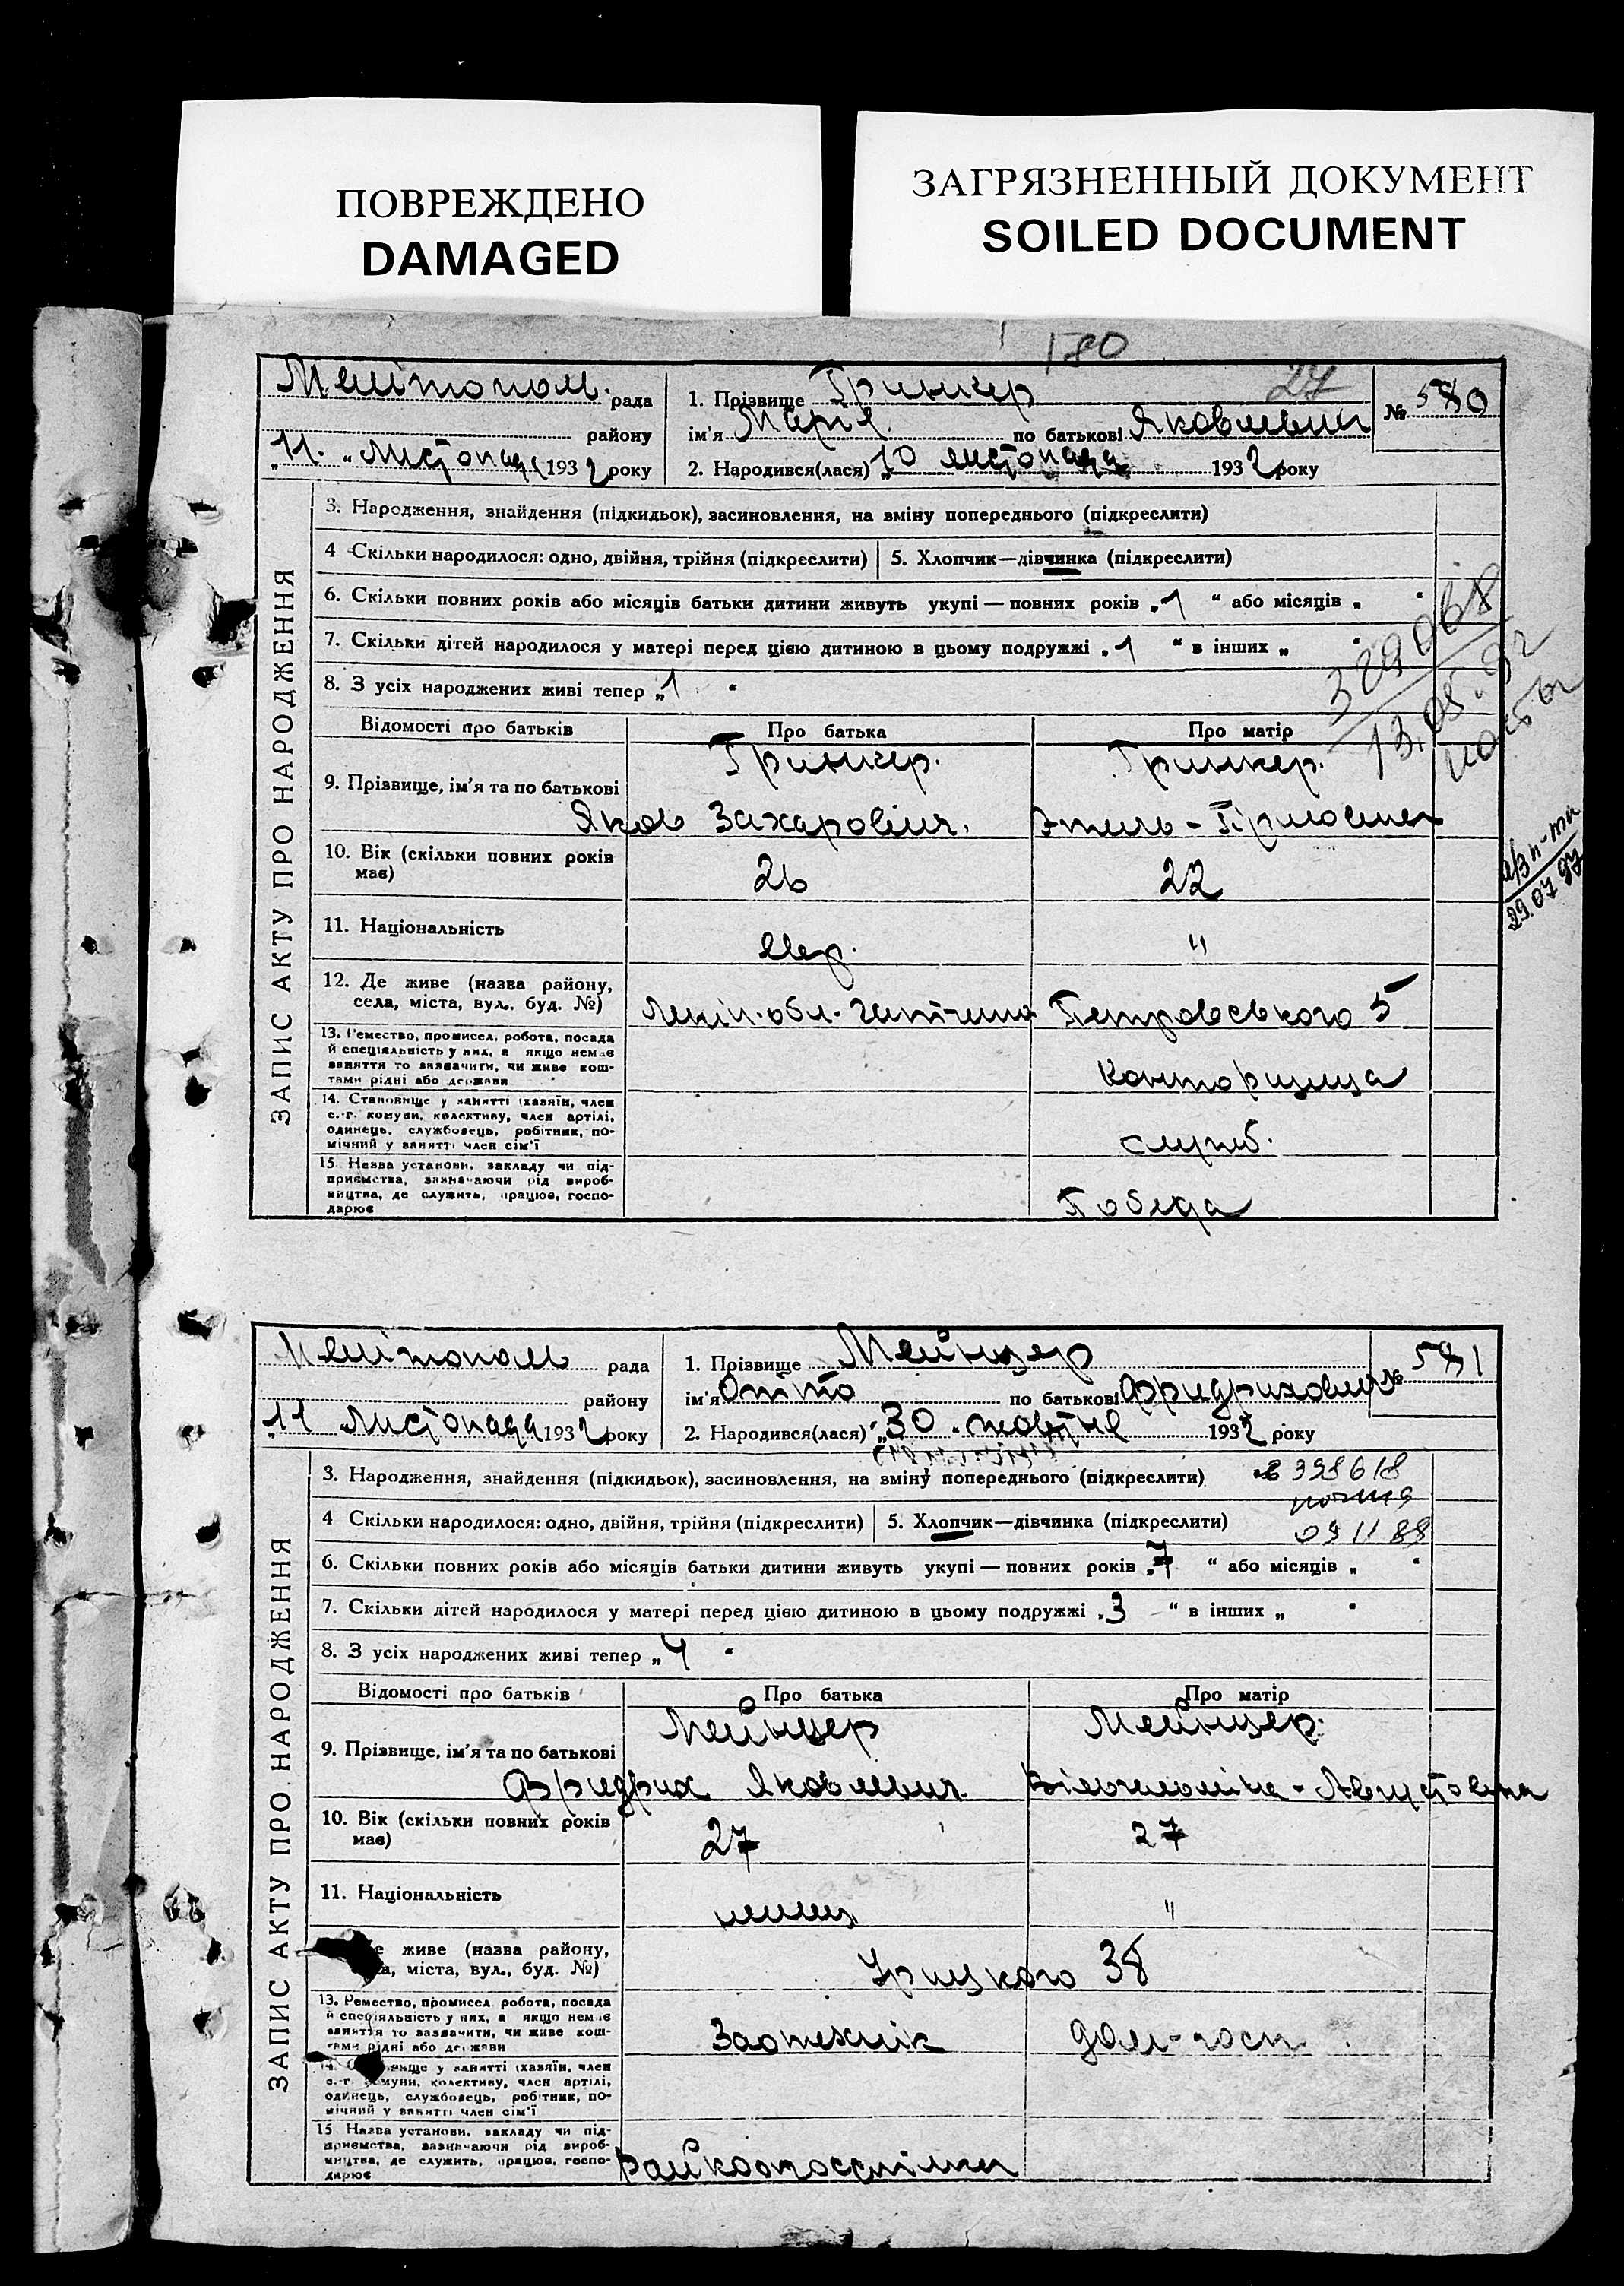 ПОВРЕЖДЕНО
DAMAGED
ЗАГРЯЗНЕННЫЙ ДОКУМЕНТ
SOILED DOCUMENT
180
27
Мелітополь рада
1. Прізвище Гринкер
№ 580
району
ім'я Марія по батькові Яковлевна
„11. “ Листопада 1932 року
2. Народився(лася) „10 листопада 1932 року
ЗАПИС АКТУ ПРО НАРОДЖЕННЯ
3. Народження, знайдення (підкидьок), засиновлення, на зміну попереднього (підкреслити)
4 Скільки народилося: одно, двійня, трійня (підкреслити)
5. Хлопчик—дівчинка (підкреслити)
6. Скільки повних років або місяців батьки дитини живуть укупі — повних років „1 “ або місяців „ “
7. Скільки дітей народилося у матері перед цією дитиною в цьому подружжі „1 “ в інших „ “
8. З усіх народжених живі тепер „1 “
329068
13.05.92
29.07.97
Відомості про батьків
Про батька
Про матір
9. Прізвище, ім'я та по батькові
Гринкер.
Гринкер.
Яков Захаровіч.
10. Вік (скільки повних років має)
26
22
11. Національність
Євр.
"
12. Де живе (назва району, села, міста, вул. буд. №)
Ленін. обл. Гатчина
Петровського 5
13. Ремество, промисел, робота, посада
й спеціяльність у них, а якщо немає
заняття то зазначити, чи живе кош-
тами рідні або держави
Конторщица
14. Становище у занятті (хазяїн, член
с.-г. комуни, колективу, член артілі,
одинець, службовець, робітник, по-
мічний у занятті член сім'ї
служб.
15 Назва установи, закладу чи під-
приємства, зазначаючи рід вироб-
ництва, де служить, працює, госпо-
дарює
Победа
Мелітополь рада
1. Прізвище Мейнцер
№ 581
району
ім'я Отто по батькові Фридрихович
„11 Листопада 1932 року
2. Народився(лася) „30 “ жовтня 1932 року
ЗАПИС АКТУ ПРО НАРОДЖЕННЯ
3. Народження, знайдення (підкидьок), засиновлення, на зміну попереднього (підкреслити)
398618
почта
09 11 88
4 Скільки народилося: одно, двійня, трійня (підкреслити)
5. Хлопчик—дівчинка (підкреслити)
6. Скільки повних років або місяців батьки дитини живуть укупі — повних років „7 “ або місяців „ “
7. Скільки дітей народилося у матері перед цією дитиною в цьому подружжі „3 “ в інших „ “
8. З усіх народжених живі тепер „4 “
Відомості про батьків
Про батька
Про матір
9. Прізвище, ім'я та по батькові
Мейнцер
Мейнцер.
Фридрих Яковлевич.
Августовна
10. Вік (скільки повних років має)
27
27
11. Національність
німец
"
е живе (назва району,
а, міста, вул., буд. №)
Урицкого 38
13. Ремество, промисел, робота, посада
й спеціяльність у них, а якщо немає
заняття то зазначити, чи живе кош-
тами рідні або держави
Зоотехнік
дом-госп.
14. Становище у занятті (хазяїн, член
с.-г. комуни, колективу, член артілі,
одинець, службовець, робітник, по-
мічний у занятті член сім'ї
15 Назва установи, закладу чи під-
приємства, зазначаючи рід вироб-
ництва, де служить, працює, госпо-
дарює